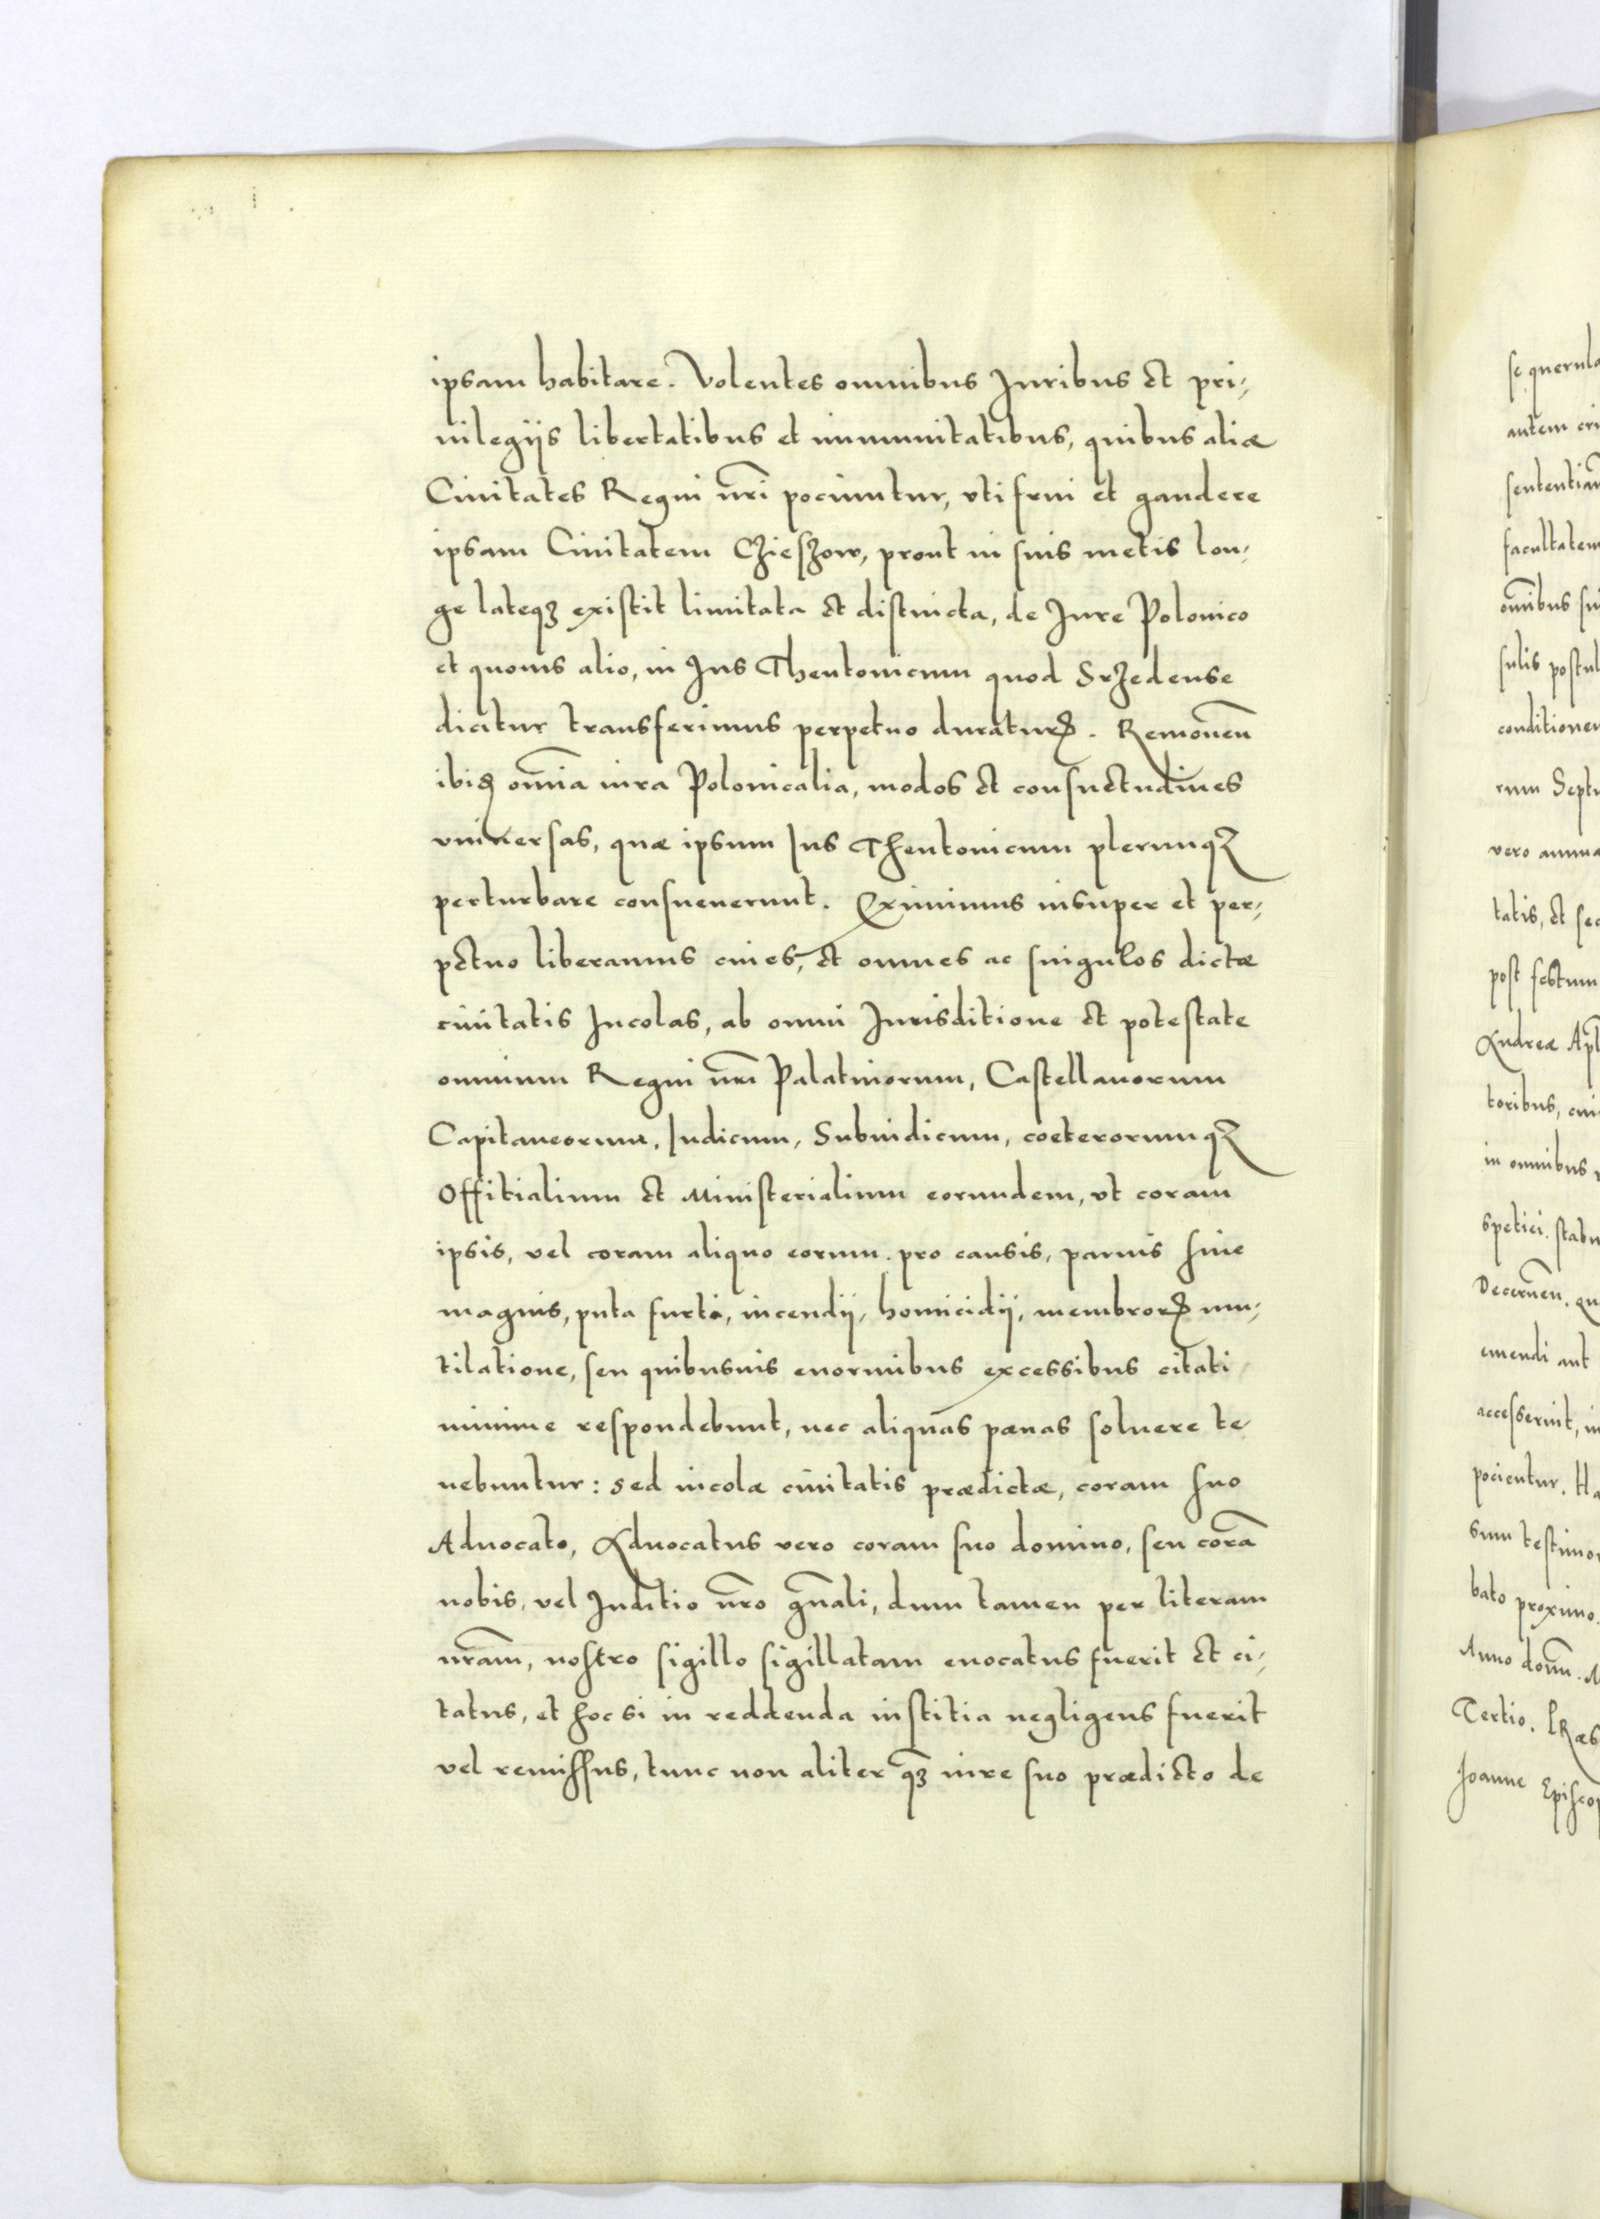 ipsam habitare. Volentes omnibus Juribus et pri-
uilegijs libertatibus et immunitatibus, quibus aliæ
Ciuitates Regni nr̃i pociuntur, vti frui et gaudere
ipsam Ciuitatem CziesZow, prout in suis metis lon-
ge lateqz existit limitata et distincta, de Jure Polonico
et quouis alio, in Jus Theutonicum quod SrZedense
dicitur transferimus perpetuo duraturꝝ. Remouen̄
ibiꝗ om̄ia iura Polonicalia, modos et consuetudines
vniuersas, quæ ipsum Jus Theutonicum plerumqꝫ
perturbare consueuerunt. Eximimus insuper et per-
petuo liberamus ciues, et omnes ac singulos dictæ
ciuitatis Incolas, ab omni Jurisditione et potestate
omnium Regni nr̃i Palatinorum, Castellanorum
Capitaneorum, Judicum, Subiudicum, coeterorumqꝫ
Offitialium et Ministerialium eorundem, vt coram
ipsis, vel coram aliquo eorum. pro causis, paruis siue
magnis, puta furti, incendij, homicidij, membrorꝝ mu-
tilatione, seu quibusuis enormibus excessibus citati
minime respondebunt, nec aliquas pænas soluere te
nebuntur: sed incolæ ciuitatis prædictæ, coram suo
Aduocato, Aduocatus vero coram suo domino, seu corã
nobis, vel Juditio nr̃o gn̄ali, dum tamen per literam
nr̃am, nostro sigillo sigillatam euocatus fuerit et ci-
tatus, et hoc si in reddenda iustitia negligens fuerit
vel remissus, tunc non aliter qꝫ iure suo prædicto de
se querula
autem cri
sententiam
facultatem
om̄ibus su
sulis postul
conditionem
rum Septu
vero annua
tatis, et sec
post festum
Andreæ Apl
toribus, cui
in omnibus
spetici. stabu
Decernen̄. qu
emendi aut
accesserint, in
pocientur. Ha
sum testimon
bato proximo.
Anno domn̄. M
Tertio. PRæs
Joanne Episcop